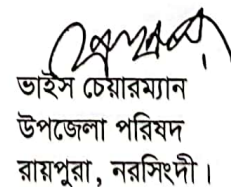 ভাইস চেয়ারম্যান
উপজেলা পরিষদ
রায়পুরা, নরসিংদী।